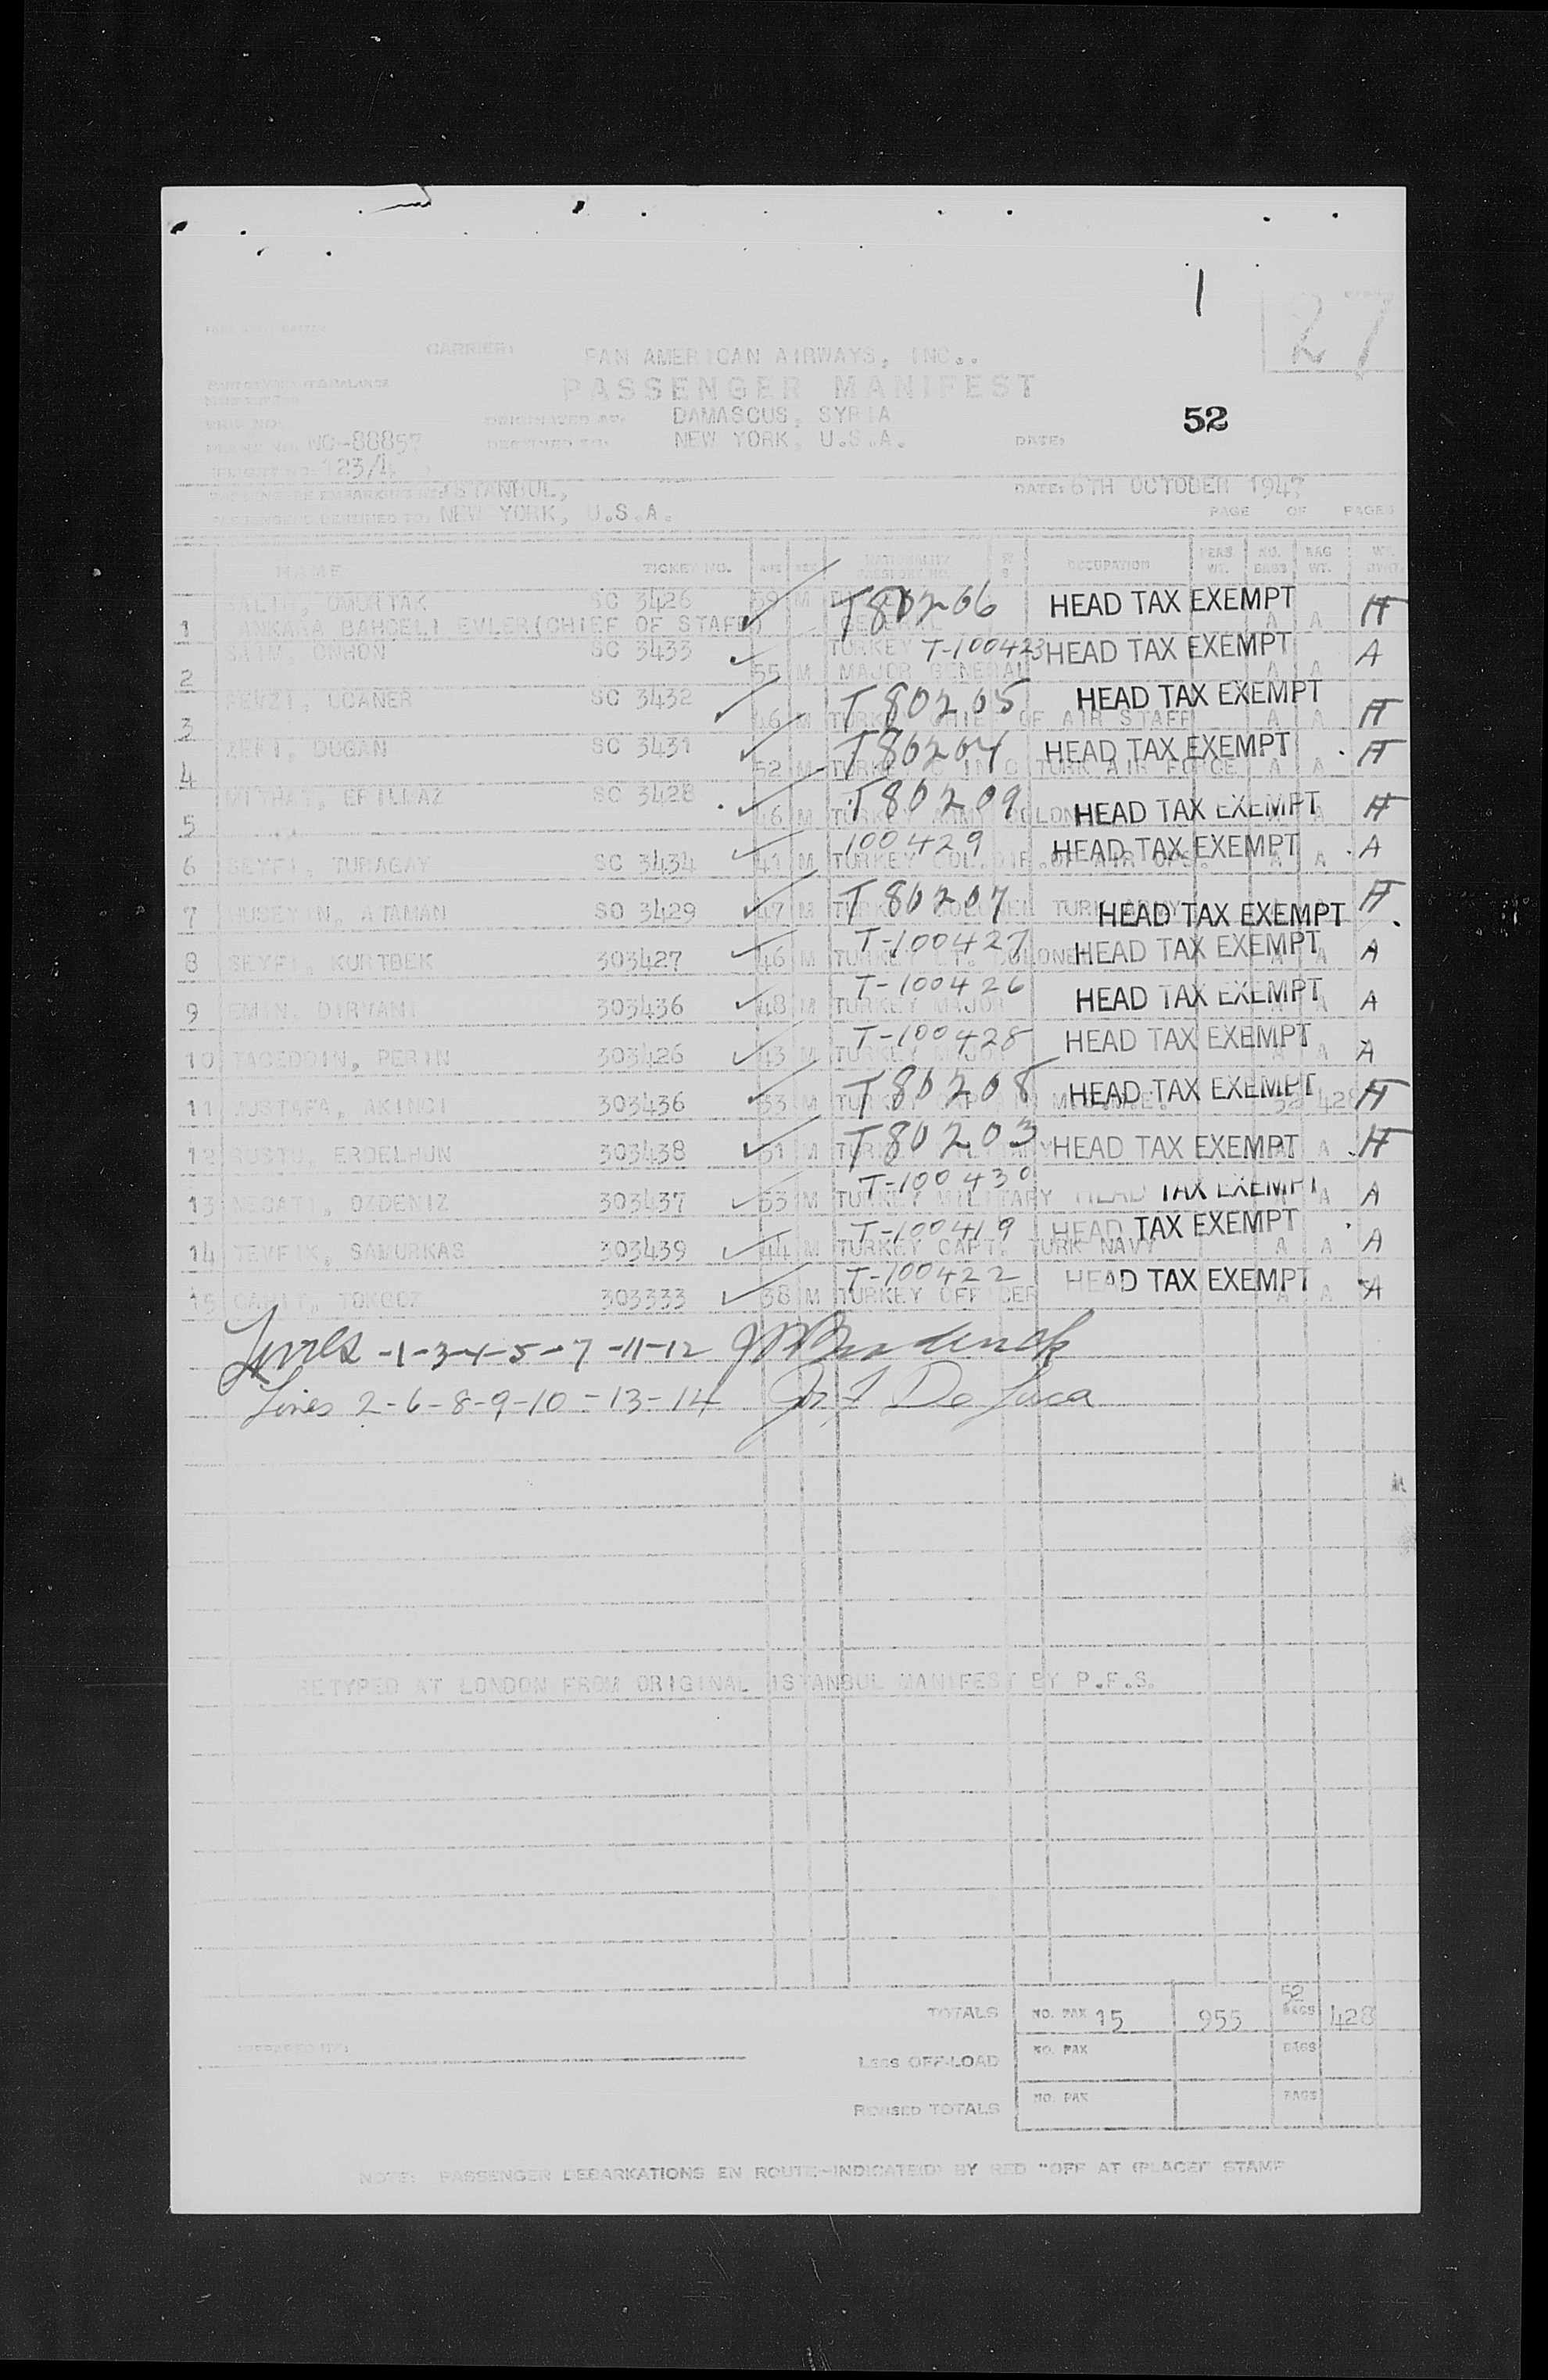 27
CARRIER: PAN AMERICAN AIRWAYS, INC..
PASSENGER MANIFEST
52
ORIGINATED AT: DAMASCUS, SYRIA
PLANE NO. NC-88857 DESTINED TO: NEW YORK, U.S.A. DATE:
FLIGHT NO. 123/4
ISTANBUL, DATE: 6TH OCTOBER 1947
PASSENGERS DESTINED TO: NEW YORK, U.S.A. PAGE OF PAGES
NAME TICKET NO. AGE SEX NATIONALITY PASSPORT NO. OCCUPATION PERS WT. NO. BAGS BAG WT. WT.
1 SALIH, OMURTAK SC 3426 59 M T80206 HEAD TAX EXEMPT H
ANKARA BAHCELI EVLER(CHIEF OF STAFF) GENERAL A A
2 SAIM, ONHON SC 3433 TURKEY T-100423 HEAD TAX EXEMPT A
55 M MAJOR GENERAL A A
3 FEVZI, UCANER SC 3432 T80205 HEAD TAX EXEMPT H
46 M TURKEY CHIEF OF AIR STAFF A A
4 ZEKI, DUGAN SC 3431 T80204 HEAD TAX EXEMPT H
52 M TURKEY C IN C TURK AIR FORCE A A
5 MITHAT, SC 3428 T80209 HEAD TAX EXEMPT H
46 M TURKEY ARMY COLONEL A
6 SEYFI, TURAGAY SC 3434 41 M 100429 TURKEY COL.DIR.OF AIR OPS. HEAD TAX EXEMPT A A A
7 HUSEYIN, ATAMAN SO 3429 47 M T80207 TURKEY COLONEL TURK ARMY HEAD TAX EXEMPT H
8 SEYFI, KURTBEK 303427 46 M T-100427 TURKEY LT. COLONEL HEAD TAX EXEMPT A A
9 EMIN, DIRVANI 303436 48 M T-100426 TURKEY MAJOR HEAD TAX EXEMPT A A
10 TACEDDIN, PERIN 303426 43 M T-100428 TURKEY MAJOR HEAD TAX EXEMPT A A A
11 MUSTAFA, AKINCI 303436 33 M T80208 HEAD TAX EXEMPT 52 428 H
12 RUSTU, ERDELHUN 303438 51 M T80203 TURKEY MILITARY HEAD TAX EXEMPT A A H
13 NECATI, OZDENIZ 303437 53 M T-100430 TURKEY MILITARY HEAD TAX EXEMPT A A A
14 TEVFIK, SAMURKAS 303439 44 M T-100419 TURKEY CAPT. TURK NAVY HEAD TAX EXEMPT A A A
15 CAHIT, TOKGOZ 303333 38 M T-100422 TURKEY OFFICER HEAD TAX EXEMPT A A A
Lines -1-3-4-5-7-11-12
Lines 2-6-8-9-10-13-14 De Luca
RETYPED AT LONDON FROM ORIGINAL ISTANBUL MANIFEST BY P.F.S.
TOTALS NO. PAX 15 955 52 BAGS 428
PREPARED BY: LESS OFF-LOAD NO. PAX BAGS
REVISED TOTALS NO. PAX BAGS
NOTE: PASSENGER DEBARKATIONS EN ROUTE-INDICATE(D) BY RED "OFF AT (PLACE)" STAMP